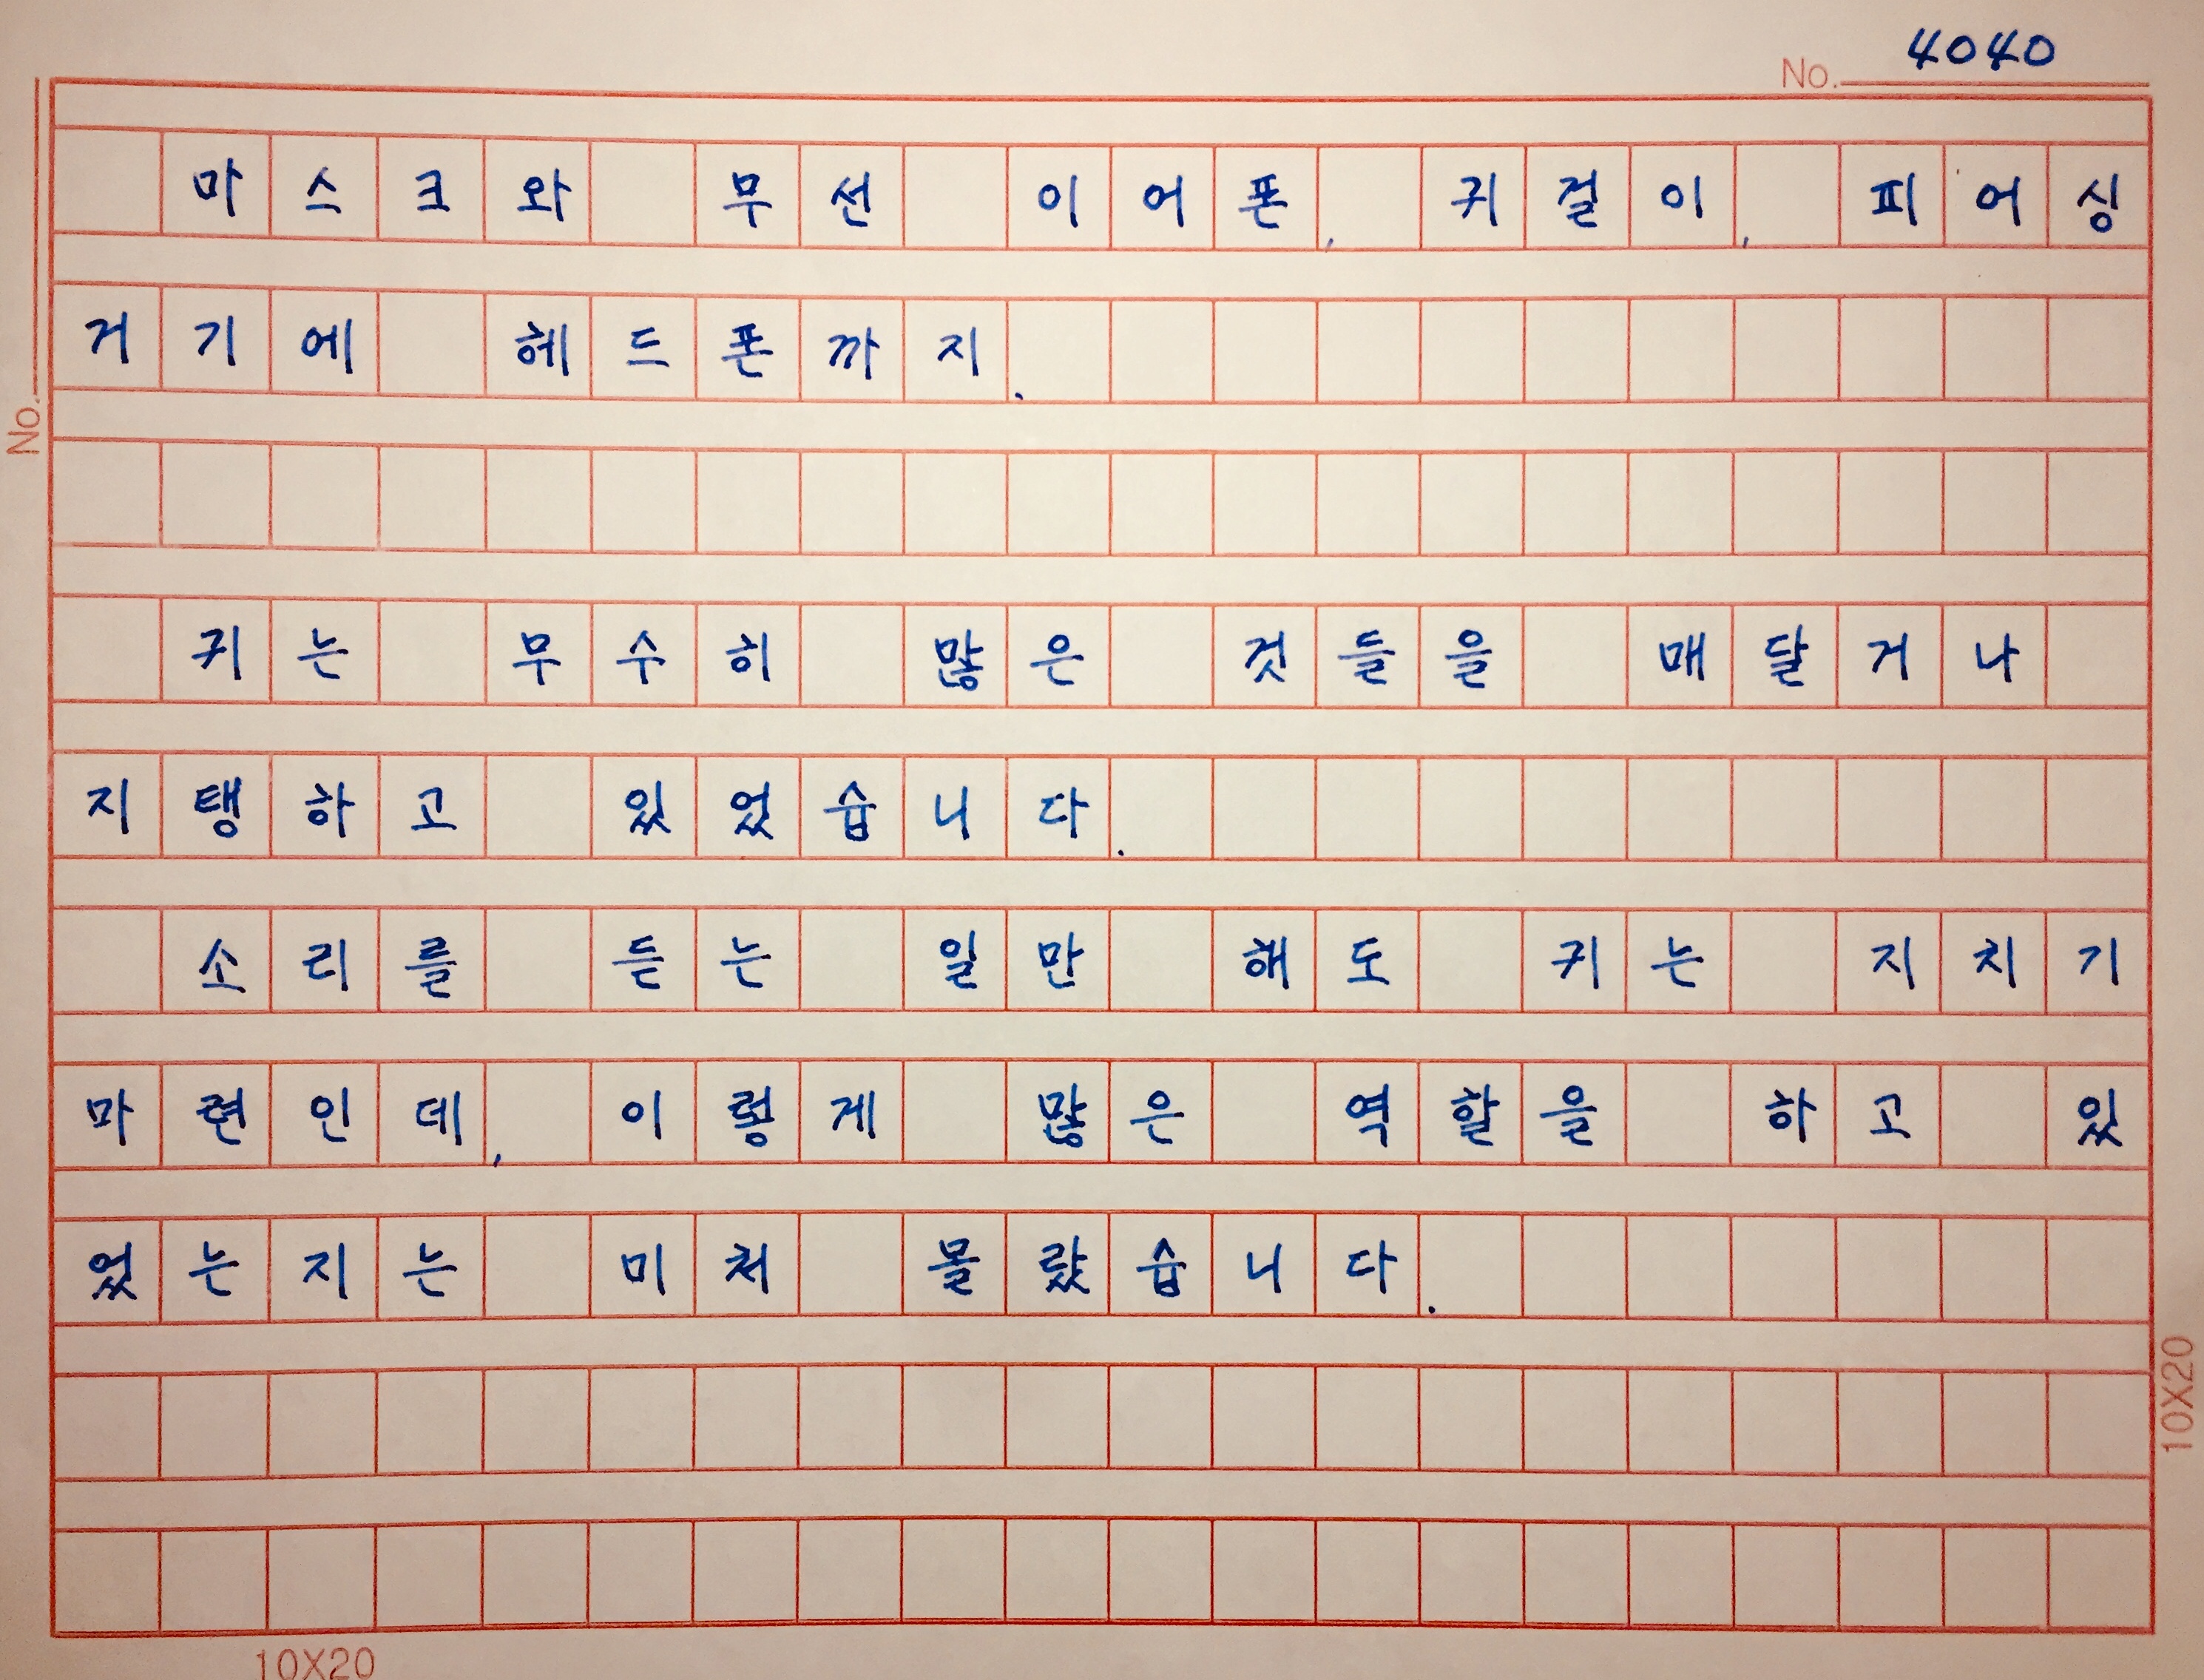 No. 4040
마스크와 무선 이어폰, 귀걸이, 피어싱
거기에 헤드폰까지.
No.
귀는 무수히 많은 것들을 매달거나
지탱하고 있었습니다.
소리를 듣는 일만 해도 귀는 지치기
마련인데, 이렇게 많은 역할을 하고 있
었는지는 미처 몰랐습니다.
10X20
10X20